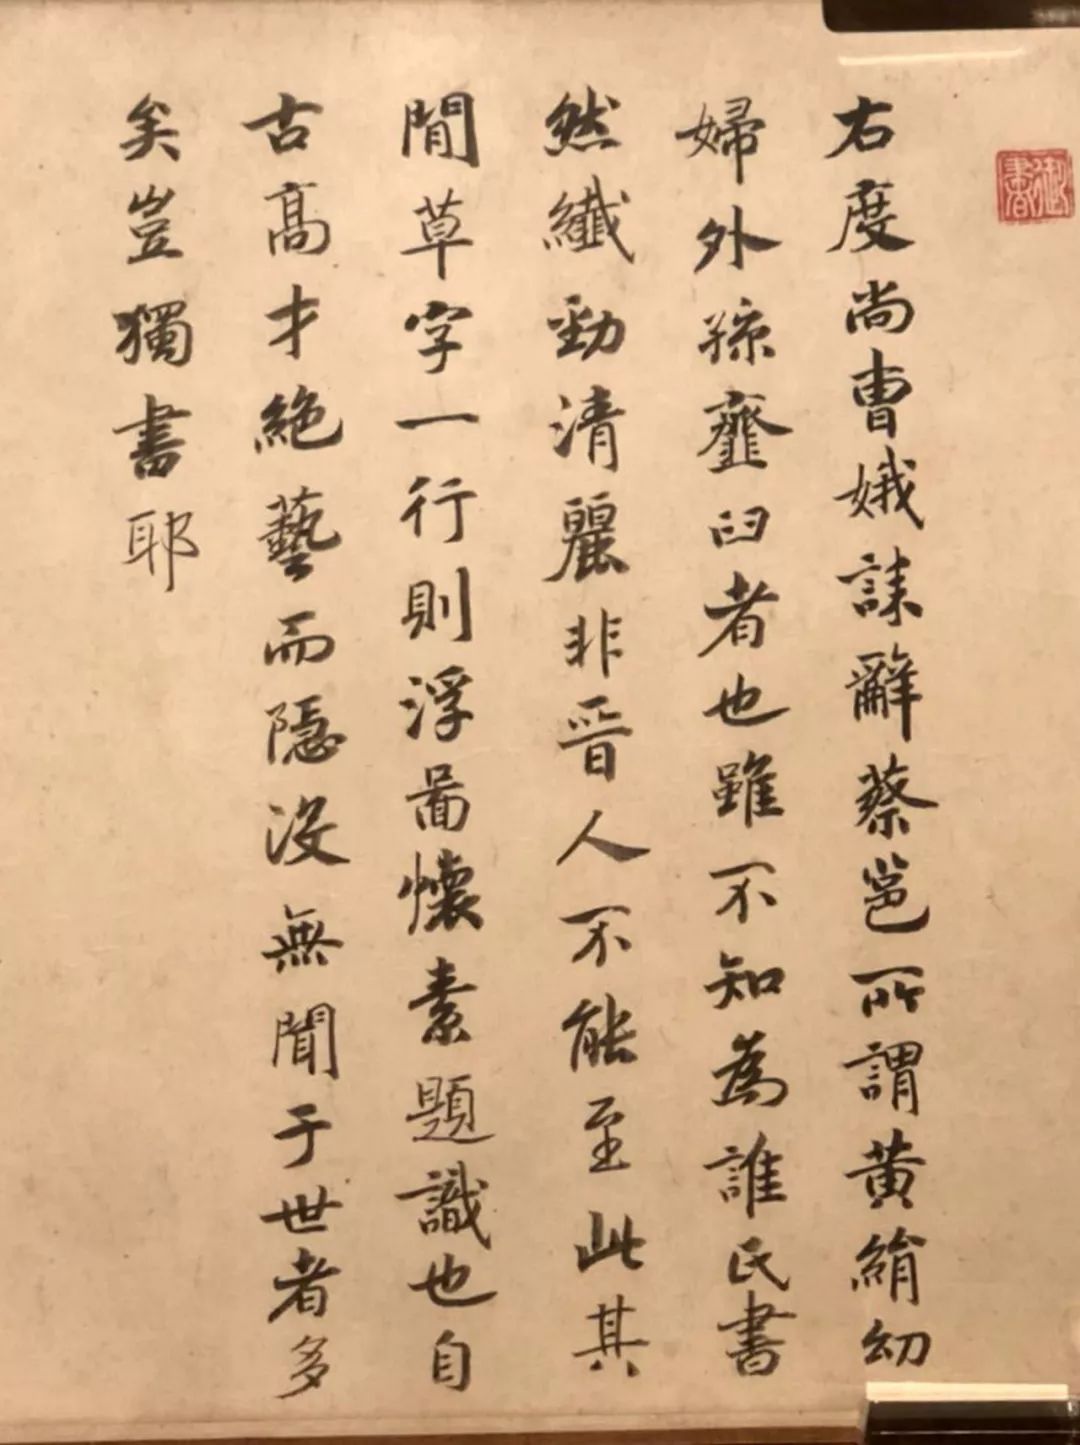 御書
右度尚曹娥誄辭蔡邕所謂黃絹幼
婦外孫虀臼者也雖不知為誰氏書
然纖勁清麗非晉人不能至此其
閒草字一行則浮啚懷素題識也自
古高才絕藝而隱沒無聞于世者多
矣豈獨書耶